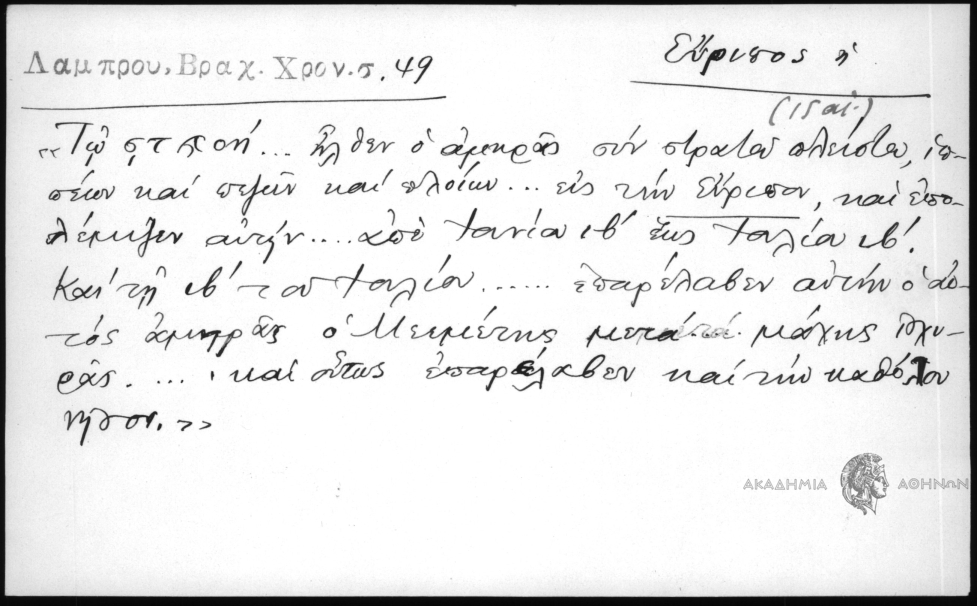 Λαμπρου, Βραχ. Χρον. σ. 49
Εὔριπος ἡ
(15 αἰ.)
«Τῷ ϛ ϡ ο ή... ἦλθεν ὁ ἀμηρᾶς σύν στρατοῦ πλείστου, ἱπ-
πέων καί πεζῶν καί πλοίων... εἰς τήν Εὔριπον, καί ἐπο-
λέμιζεν αὐτήν.... ἀπό Ἰουνίου ιβ' ἕως Ἰουλίου ιβ'.
Καί τῇ ιβ' τοῦ Ἰουλίου...... ἐπαρέλαβεν αὐτήν ὁ αὐ-
τός ἀμηρᾶς ὁ Μεεμέτης μετά μάχης ἰσχυ-
ρᾶς..... καί οὕτως ἐπαρέλαβεν καί τήν καθόλου
νῆσον.»
ΑΚΑΔΗΜΙΑ ΑΘΗΝΩΝ